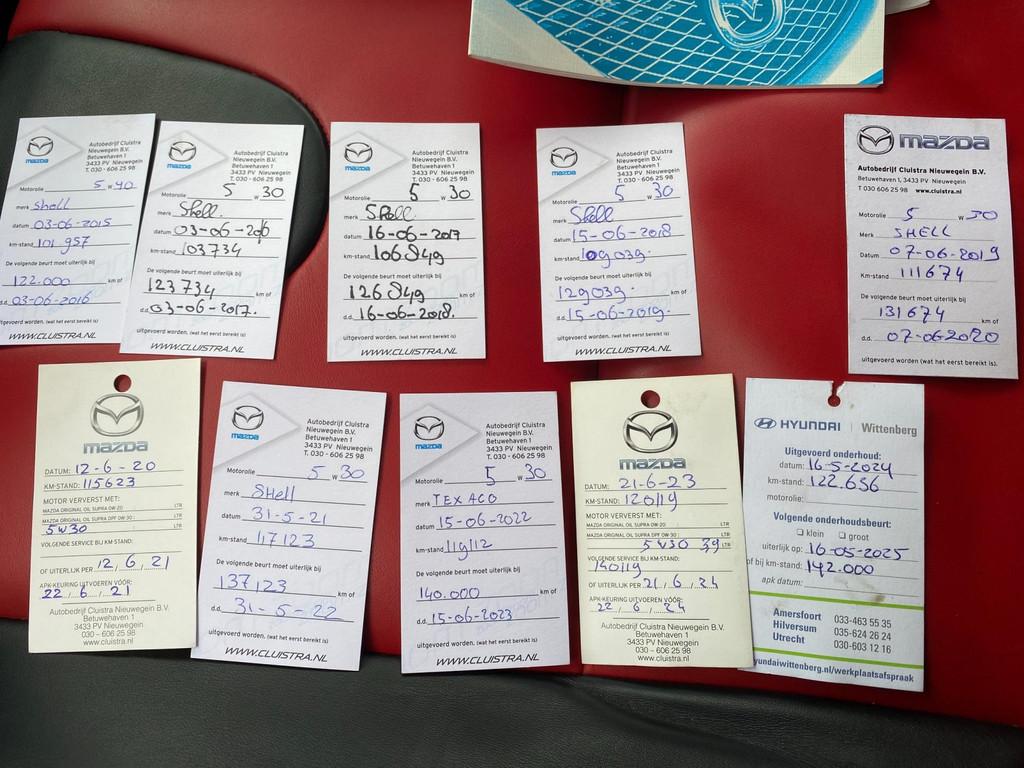 mazda
Autobedrijf Cluistra
Nieuwegein B.V.
Betuwehaven 1
3433 PV Nieuwegein
T. 030 - 606 25 98
Motorolie 5 W 40
merk Shell
datum 03-06-2015
km-stand 101 957
De volgende beurt moet uiterlijk bij
122.000 km of
d.d. 03-06-2016
uitgevoerd worden. (wat het eerst bereikt is)
WWW.CLUISTRA.NL
mazda
Autobedrijf Cluistra
Nieuwegein B.V.
Betuwehaven 1
3433 PV Nieuwegein
T. 030 - 606 25 98
Motorolie 5 w 30
merk Shell.
datum 03-06-206
km-stand 103734
De volgende beurt moet uiterlijk bij
123734 km of
d.d. 03-06-2017.
uitgevoerd worden. (wat het eerst bereikt is)
WWW.CLUISTRA.NL
mazda
Autobedrijf Cluistra
Nieuwegein B.V.
Betuwehaven 1
3433 PV Nieuwegein
T. 030 - 606 25 98
Motorolie 5 w 30
merk Shell
datum 16-06-2017
km-stand 106849
De volgende beurt moet uiterlijk bij
126849 km of
d.d. 16-06-2018.
uitgevoerd worden. (wat het eerst bereikt is)
WWW.CLUISTRA.NL
mazda
Autobedrijf Cluistra
Nieuwegein B.V.
Betuwehaven 1
3433 PV Nieuwegein
T. 030 - 606 25 98
Motorolie 5 w 30
merk Shell
datum 15-06-2018
km-stand 109039.
De volgende beurt moet uiterlijk bij
129039. km of
d.d. 15-06-2019.
uitgevoerd worden. (wat het eerst bereikt is)
WWW.CLUISTRA.NL
mazda
Autobedrijf Cluistra Nieuwegein B.V.
Betuwehaven 1, 3433 PV Nieuwegein
T 030 606 25 98 www.cluistra.nl
Motorolie 5 w 30
Merk SHELL
Datum 07-06-2019
Km-stand 111674
De volgende beurt moet uiterlijk bij
131674 km of
d.d. 07-06-2020
uitgevoerd worden (wat het eerst bereikt is).
mazda
DATUM: 12-6-20
KM-STAND: 115623
MOTOR VERVERST MET:
MAZDA ORIGINAL OIL SUPRA 0W-20: LTR
MAZDA ORIGINAL OIL SUPRA DPF 0W-30: LTR
5W30 LTR
VOLGENDE SERVICE BIJ KM-STAND:
OF UITERLIJK PER 12/6/21
APK-KEURING UITVOEREN VÓÓR:
22/6/21
Autobedrijf Cluistra Nieuwegein B.V.
Betuwehaven 1
3433 PV Nieuwegein
030 - 606 25 98
www.cluistra.nl
mazda
Autobedrijf Cluistra
Nieuwegein B.V.
Betuwehaven 1
3433 PV Nieuwegein
T. 030 - 606 25 98
Motorolie 5 w 30
merk Shell
datum 31-5-21
km-stand 117123
De volgende beurt moet uiterlijk bij
137123 km of
d.d. 31-5-22
uitgevoerd worden. (wat het eerst bereikt is)
WWW.CLUISTRA.NL
mazda
Autobedrijf Cluistra
Nieuwegein B.V.
Betuwehaven 1
3433 PV Nieuwegein
T. 030 - 606 25 98
Motorolie 5 w 30
merk TEXACO
datum 15-06-2022
km-stand 119112
De volgende beurt moet uiterlijk bij
140.000 km of
d.d. 15-06-2023
uitgevoerd worden. (wat het eerst bereikt is)
WWW.CLUISTRA.NL
mazda
DATUM: 21-6-23
KM-STAND: 120119
MOTOR VERVERST MET:
MAZDA ORIGINAL OIL SUPRA 0W-20: LTR
MAZDA ORIGINAL OIL SUPRA DPF 0W-30: LTR
5W30 39 LTR
VOLGENDE SERVICE BIJ KM-STAND:
140119
OF UITERLIJK PER 21/6/24
APK-KEURING UITVOEREN VÓÓR:
22/6/24
Autobedrijf Cluistra Nieuwegein B.V.
Betuwehaven 1
3433 PV Nieuwegein
030 - 606 25 98
www.cluistra.nl
HYUNDAI | Wittenberg
Uitgevoerd onderhoud:
datum: 16-5-2024
km-stand: 122.656
motorolie:
Volgende onderhoudsbeurt:
klein groot
uiterlijk op: 16-05-2025
of bij km-stand: 142.000
apk datum:
Amersfoort 033-463 55 35
Hilversum 035-624 26 24
Utrecht 030-603 12 16
yundaiwittenberg.nl/werkplaatsafspraak